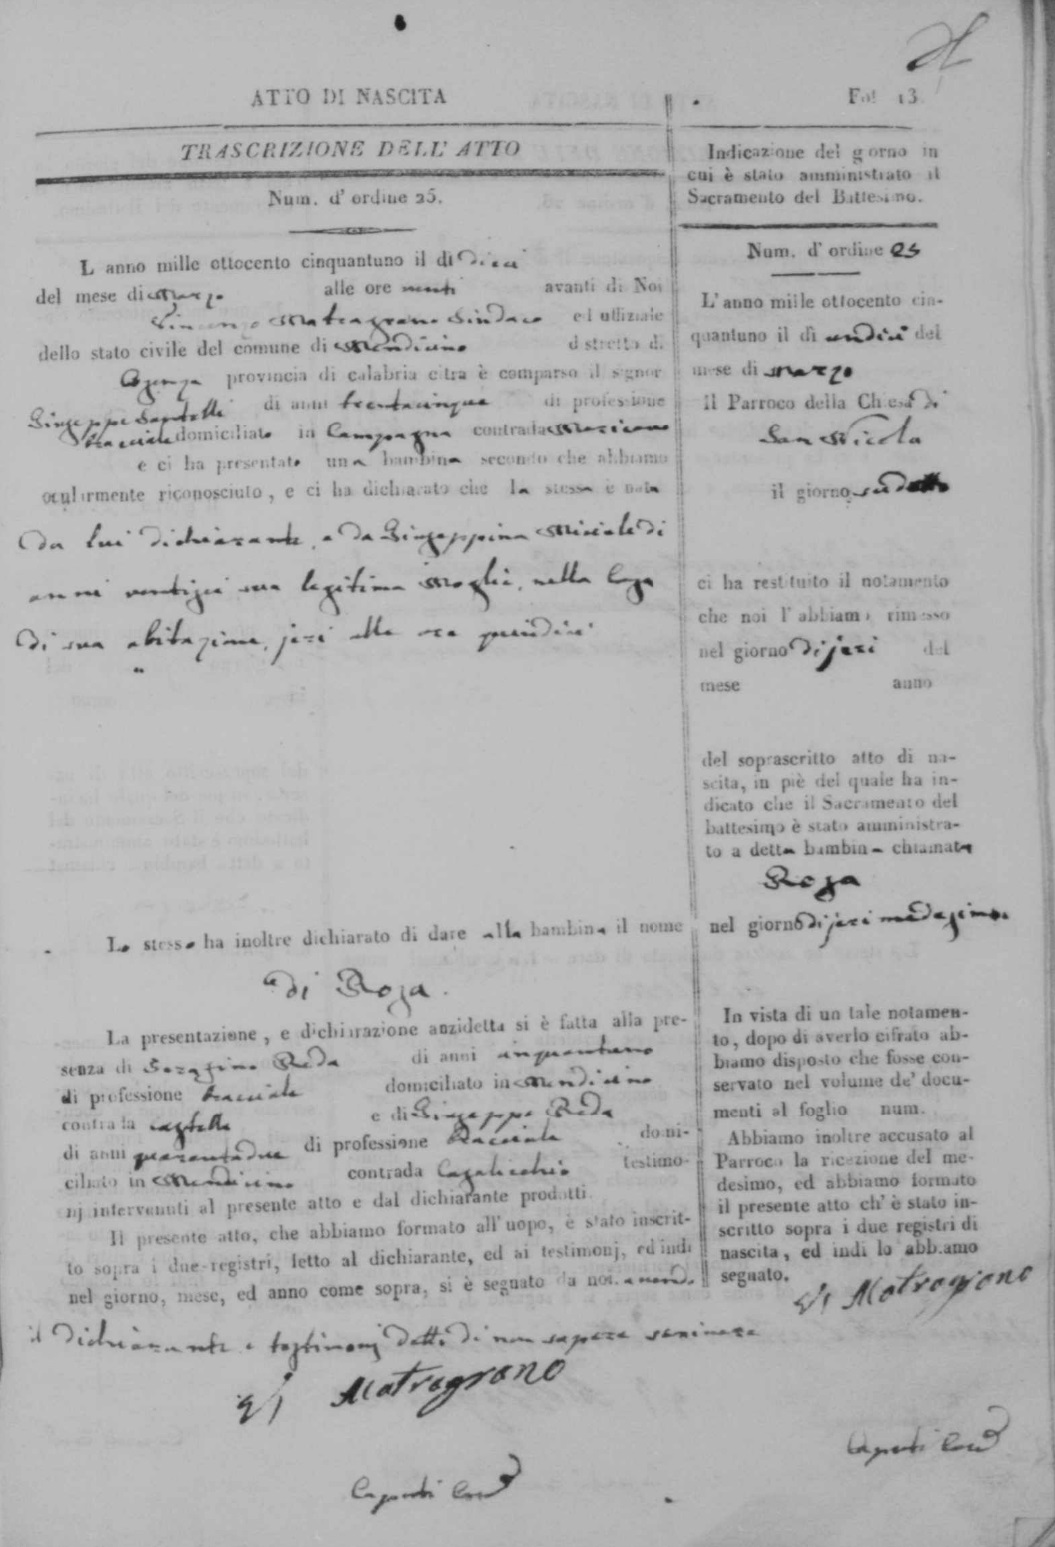 ATTO DI NASCITA
Fol 13
TRASCRIZIONE DELL' ATTO
Num. d' ordine 25.
L anno mille ottocento cinquantuno il di dieci
del mese di Marzo alle ore venti avanti di Noi
Vincenzo Matragrano Sindaco ed uffiziale
dello stato civile del comune di Mendicino distretto di
Cosenza provincia di calabria citra è comparso il signor
Giuseppe di anni trentacinque di professione
bracciale domiciliato in Campagna contrada
e ci ha presentato una bambina secondo che abbiamo
ocularmente riconosciuto, e ci ha dichiarato che la stessa è nata
da lui dichiarante, e da Giuseppina di
anni sua legitima Moglie, nella Casa
di sua abitazione, jeri alle ore quindici
Lo stesso ha inoltre dichiarato di dare alla bambina il nome
di Rosa.
La presentazione, e dichiarazione anzidetta si è fatta alla pre-
senza di Serafino Reda di anni cinquantuno
di professione bracciale domiciliato in Mendicino
contrada castello e di Giuseppe Reda
di anni quarantadue di professione Bracciale domi-
ciliato in Mendicino contrada testimo-
nj intervenuti al presente atto e dal dichiarante prodotti.
Il presente atto, che abbiamo formato all' uopo, è stato inscrit-
to sopra i due registri, letto al dichiarante, ed ai testimonj, ed indi
nel giorno, mese, ed anno come sopra, si è segnato da noi. avendo
il dichiarante e testimonj detto di non sapere scrivere
V Matragrano
Caputi
Indicazione del giorno in
cui è stato amministrato il
Sacramento del Battesimo.
Num. d' ordine 25
L' anno mille ottocento cin-
quantuno il dì undici del
mese di Marzo
il Parroco della Chiesa di
San Nicola
il giorno sudetto
ci ha restituito il notamento
che noi l' abbiamo rimesso
nel giorno di jeri del
mese anno
del soprascritto atto di na-
scita, in piè del quale ha in-
dicato che il Sacramento del
battesimo è stato amministra-
to a detta bambina chiamata
Rosa
nel giorno di jeri medesimo.
In vista di un tale notamen-
to, dopo di averlo cifrato ab-
biamo disposto che fosse con-
servato nel volume de' docu-
menti al foglio num.
Abbiamo inoltre accusato al
Parroco la ricezione del me-
desimo, ed abbiamo formato
il presente atto ch' è stato in-
scritto sopra i due registri di
nascita, ed indi lo abbiamo
segnato.
V Matragrano
Caputi